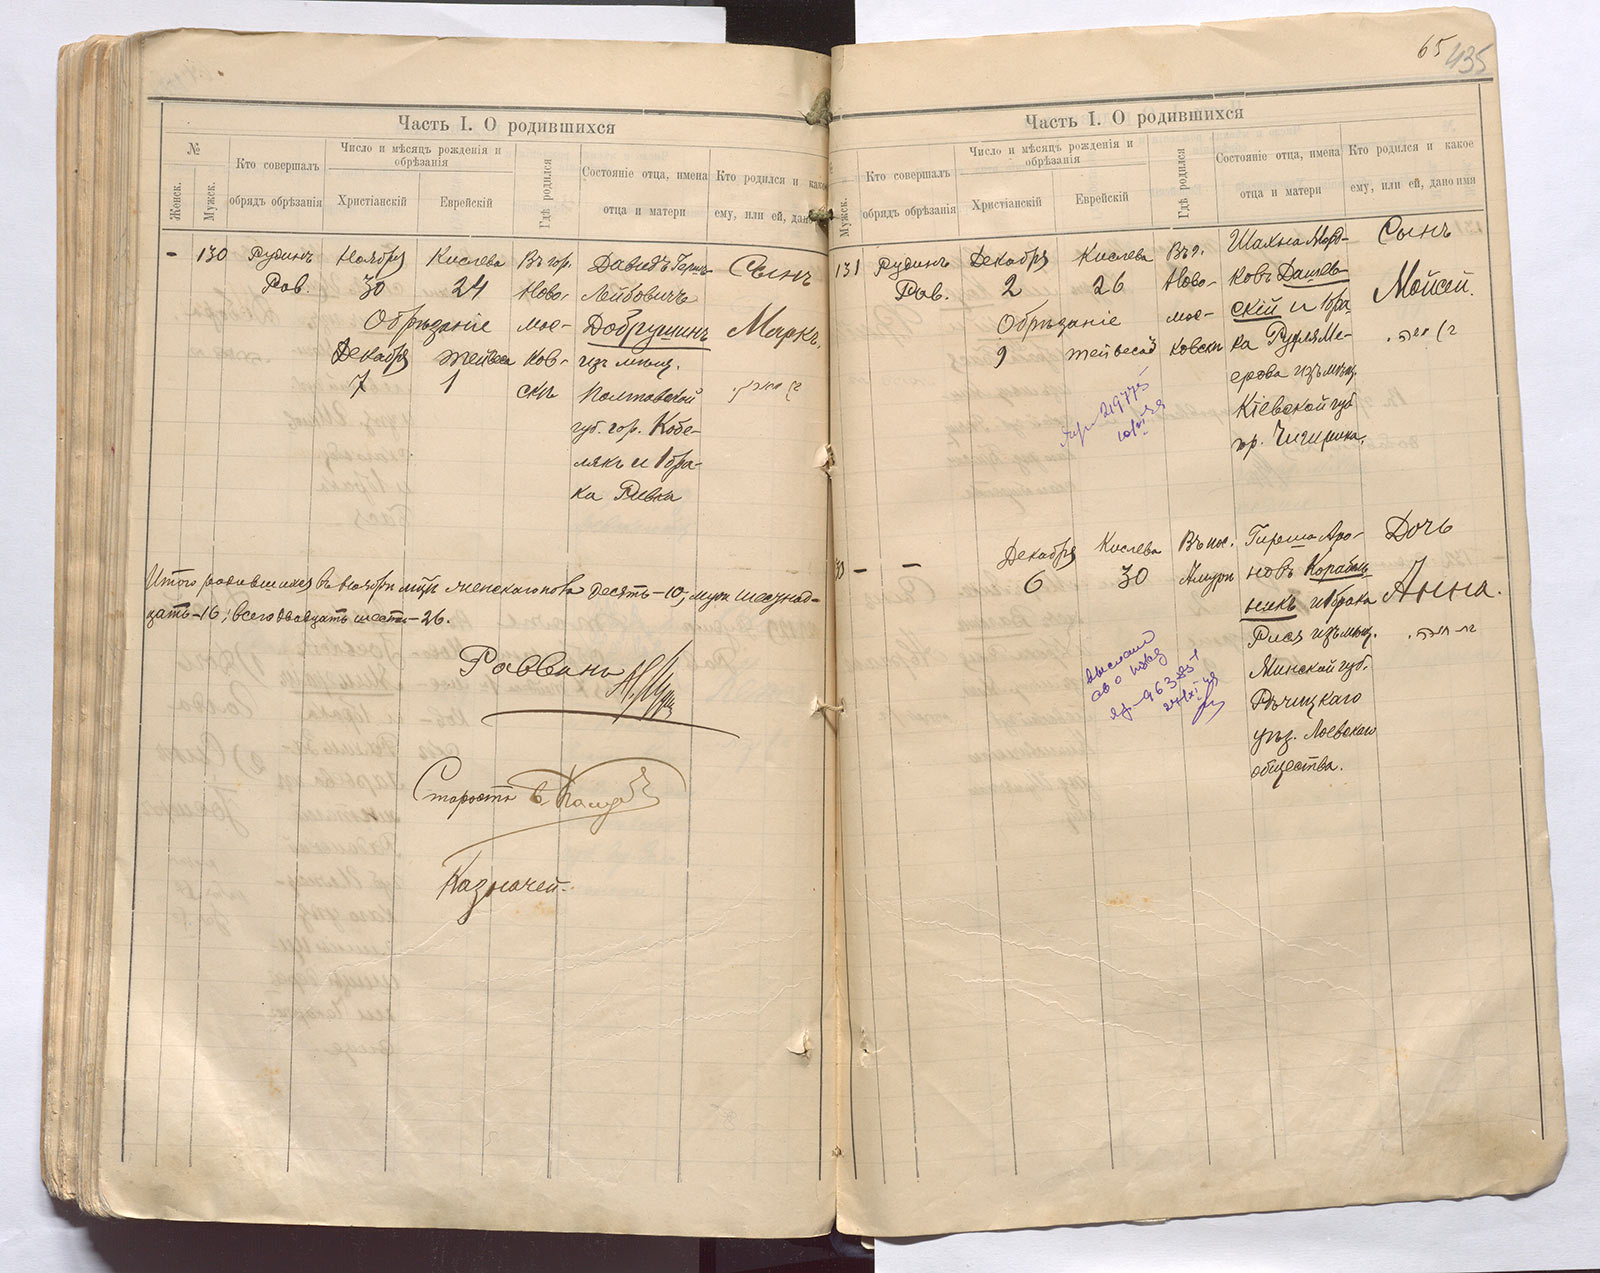 65 435
Часть I. О родившихся
№
Женск.
Мужск.
Кто совершалъ
обрядъ обрѣзанія
Число и мѣсяцъ рожденія и
обрѣзанія
Христіанскій
Еврейскій
Гдѣ родился
Состояніе отца, имена
отца и матери
Кто родился и какое
ему, или ей, дано
- 130
Рудинъ
Рав.
Ноября
30
Кислева
24
Обрѣзаніе
Декабря
7
Тейвеса
1
Въ гор.
Ново-
мос-
ков-
скѣ
Давидъ Герш-
Лейбовичъ
Добрушинъ
изъ мѣщ.
Полтавской
губ. гор. Кобе-
лякъ и 1 бра-
ка Ривка
Сынъ
Маркъ.
Итого родившихся въ ноябрѣ мцѣ женскаго пола десять-10; муж шестнад-
цать-16; всего двадцать шесть-26.
Раввинъ
Староста
Казначей.
Часть I. О родившихся
Мужск.
Кто совершалъ
обрядъ обрѣзанія
Число и мѣсяцъ рожденія и
обрѣзанія
Христіанскій
Еврейскій
Гдѣ родился
Состояніе отца, имена
отца и матери
Кто родился и какое
ему, или ей, дано имя
131
Рудинъ
Рав.
Декабря
2
Кислева
26
Обрѣзаніе
9
Тейвеса 3
Въ г.
Ново-
мос-
ковскѣ
Шахна Морд-
ковъ Дашев-
скій и 1 бра-
ка Руфля Ме-
ерова изъ мѣщ.
Кіевской губ
гор. Чигирина.
Сынъ
Мойсей.
- -
Декабря
6
Кислева
30
Въ пос.
Амуръ
Гирша Аро-
новъ Корабель-
никъ и 1 брака
Рися изъ мѣщ.
Минской губ.
Рѣчицкаго
уѣз. Лоевскаго
общества.
Дочь
Анна.